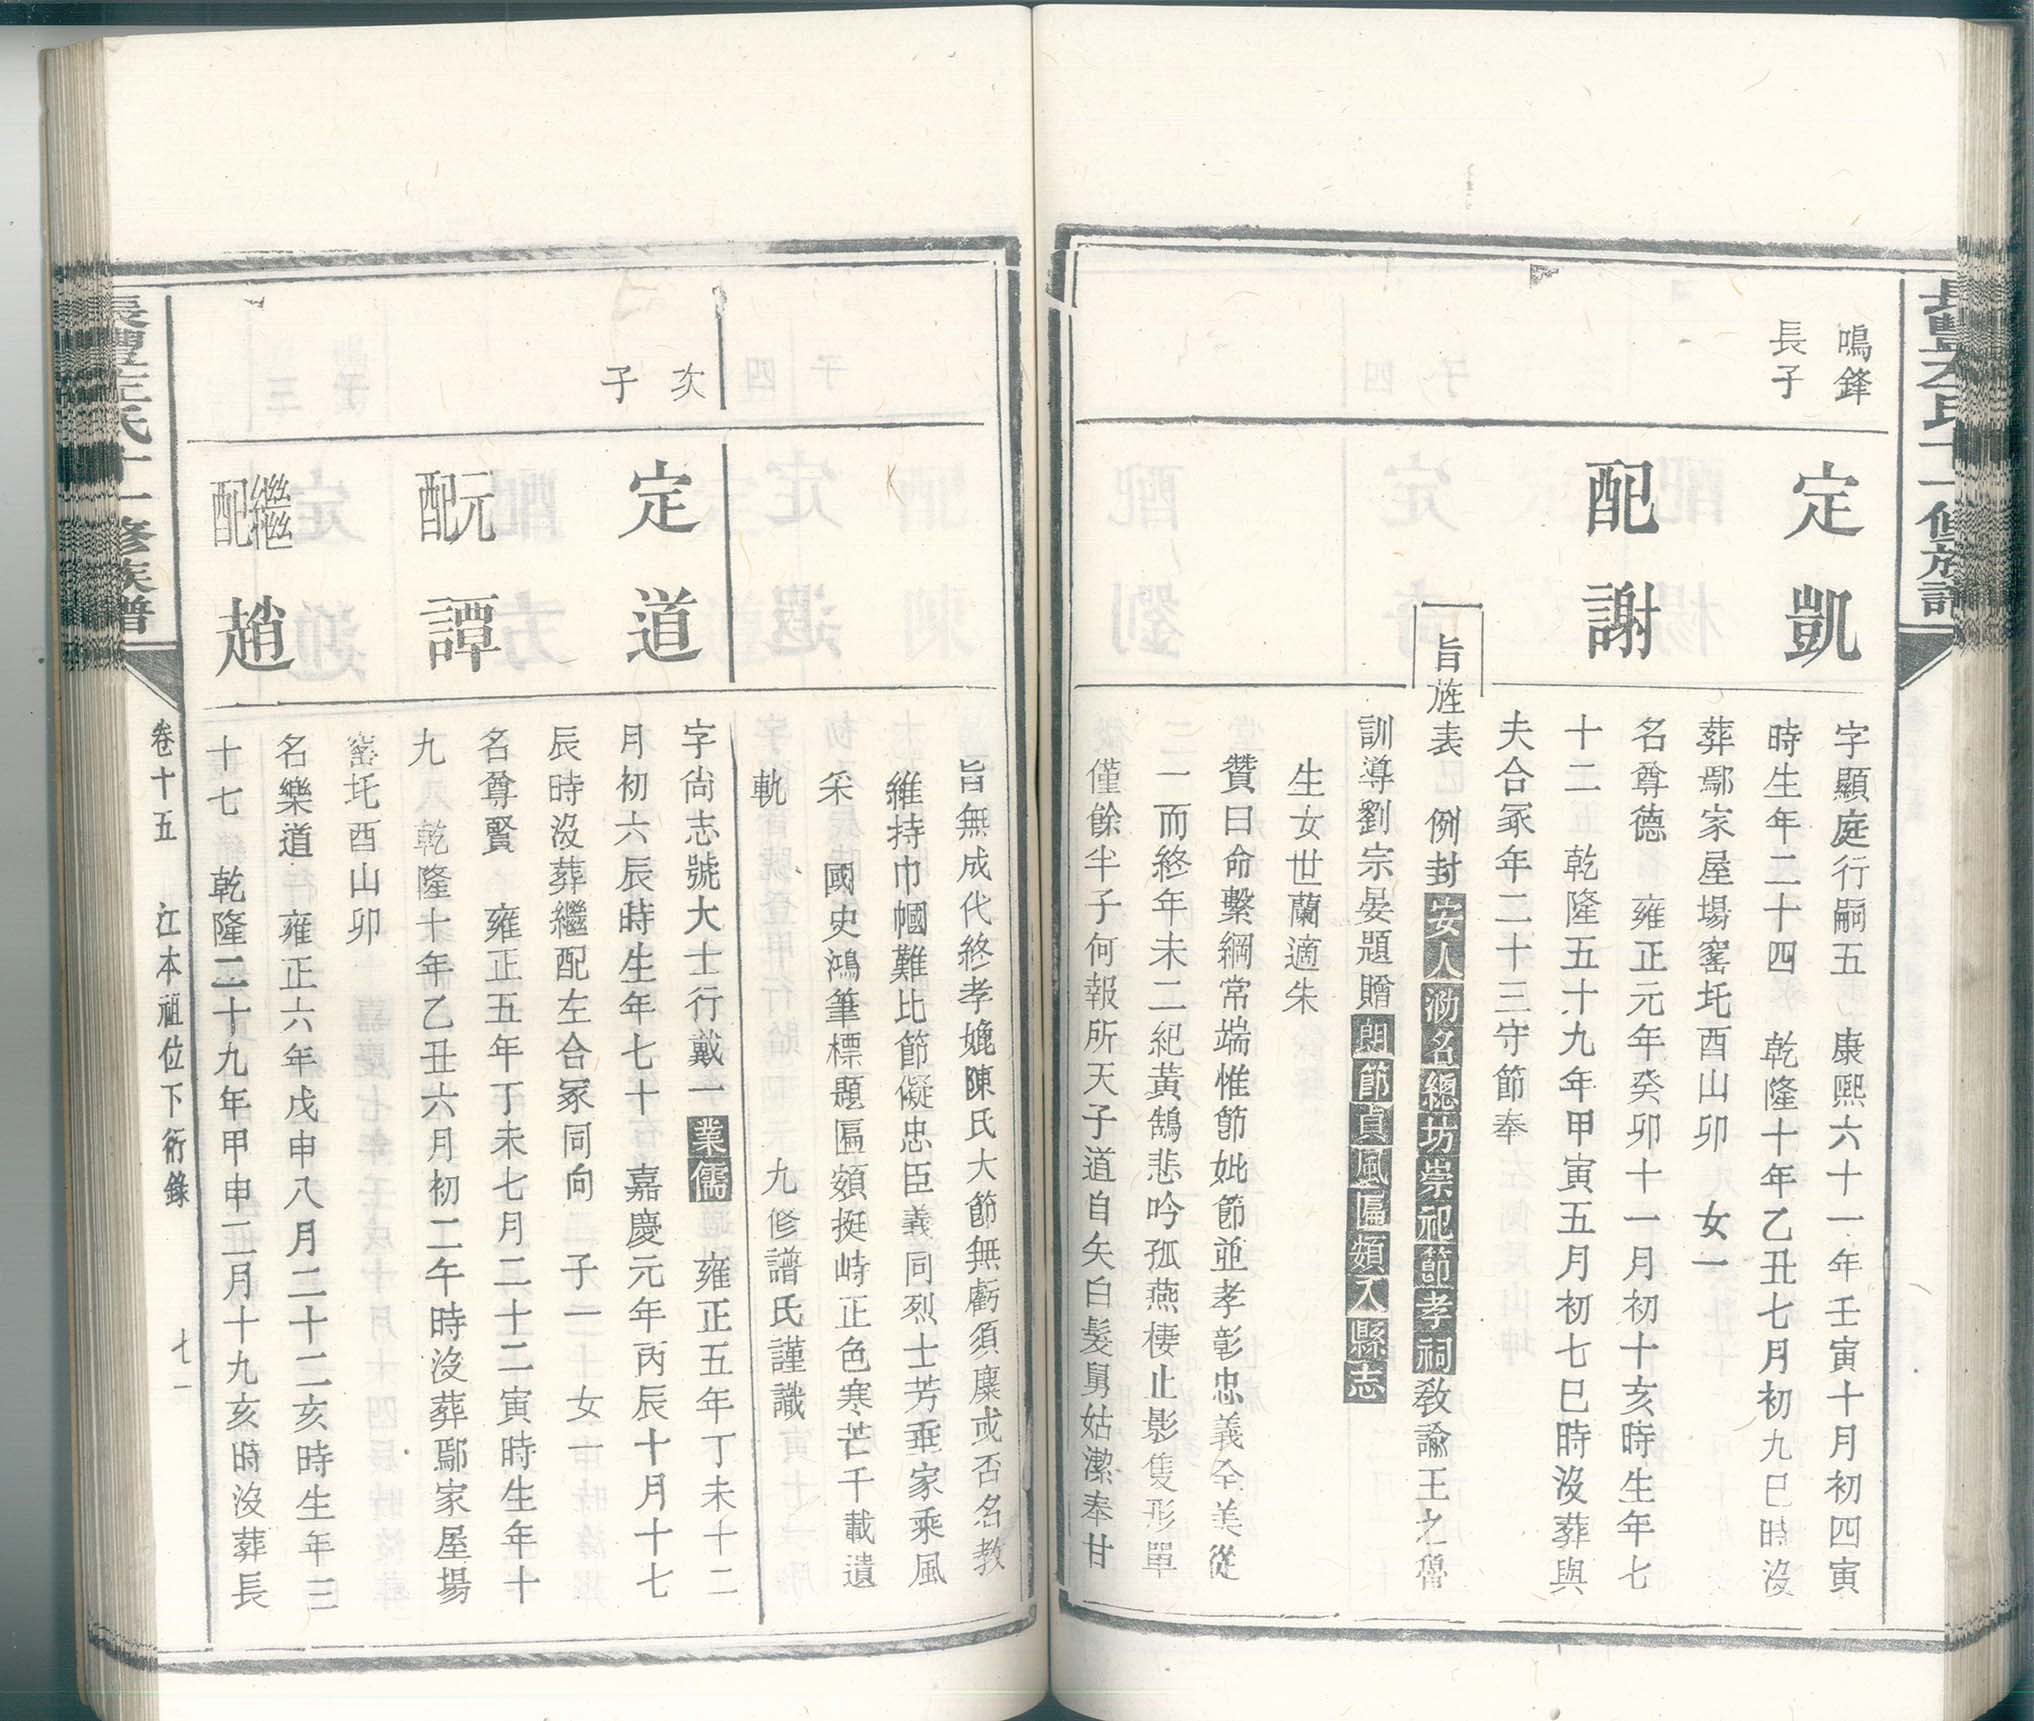 鳴鋒
長子
定凱
字顯庭行嗣五 康熙六十一年壬寅十月初四寅
時生年二十四 乾隆十年乙丑七月初九巳時沒
葬鄢家屋場窰坉酉山卯 女一
配謝
名尊德 雍正元年癸卯十一月初十亥時生年七
十二 乾隆五十九年甲寅五月初七巳時沒葬與
夫合冢年二十三守節奉
旨旌表 例封安人泐名總坊崇祀節孝祠教諭王之
訓導劉宗晏題贈朗節貞風匾額入縣志
生女世蘭適朱
贊曰命繫綱常端惟節妣節並孝彰忠義仝美從
一而終年未二紀黃鵠悲吟孤燕棲止影隻形單
僅餘半子何報所天子道自矢白髮舅姑潔奉甘
旨無成代終孝媲陳氏大節無虧須麋或否名教
維持巾幗難比節儗忠臣義同烈士芳垂家乘風
采 國史鴻筆標題匾額挺峙正色寒芒千載遺
軌 九修譜氏謹識
次
子
定道
字尙志號大士行戴一業儒 雍正五年丁未十二
月初六辰時生年七十 嘉慶元年丙辰十月十七
辰時沒葬繼配左合冢同向 子一 女一
元配譚
名尊賢 雍正五年丁未七月二十二寅時生年十
九 乾隆十年乙丑六月初二午時沒葬鄢家屋場
窰坉酉山卯
繼配趙
名樂道 雍正六年戊申八月二十二亥時生年三
十七 乾隆二十九年甲申二月十九亥時沒葬長
豐左氏十一修族譜
卷十五 江本祖位下衍錄 七一